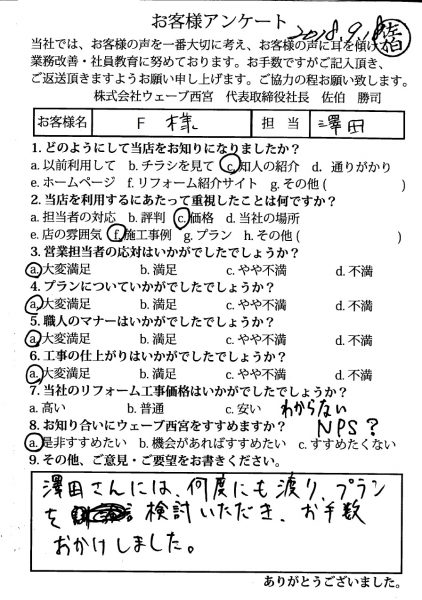 お客様アンケート 2018.9.18 佐伯
当社では、お客様の声を一番大切に考え、お客様の声に耳を傾け、
業務改善・社員教育に努めております。お手数ですがご記入頂き、
ご返送頂きますようお願い申し上げます。ご協力の程お願い致します。
株式会社ウェーブ西宮 代表取締役社長 佐伯 勝司
お客様名 F 様 担当 澤田
1. どのようにして当店をお知りになりましたか?
a. 以前利用して b. チラシを見て c. 知人の紹介 d. 通りがかり
e. ホームページ f. リフォーム紹介サイト g. その他( )
2. 当店を利用するにあたって重視したことは何ですか?
a. 担当者の対応 b. 評判 c. 価格 d. 当社の場所
e. 店の雰囲気 f. 施工事例 g. プラン h. その他( )
3. 営業担当者の応対はいかがでしたでしょうか?
a. 大変満足 b. 満足 c. やや不満 d. 不満
4. プランについていかがでしたでしょうか?
a. 大変満足 b. 満足 c. やや不満 d. 不満
5. 職人のマナーはいかがでしたでしょうか?
a. 大変満足 b. 満足 c. やや不満 d. 不満
6. 工事の仕上がりはいかがでしたでしょうか?
a. 大変満足 b. 満足 c. やや不満 d. 不満
7. 当社のリフォーム工事価格はいかがでしたでしょうか?
a. 高い b. 普通 c. 安い わからない
8. お知り合いにウェーブ西宮をすすめますか? NPS?
a. 是非すすめたい b. 機会があればすすめたい c. すすめたくない
9. その他、ご意見・ご要望をお書きください。
澤田さんには、何度にも渡り、プラン
を 検討いただき、お手数
おかけしました。
ありがとうございました。